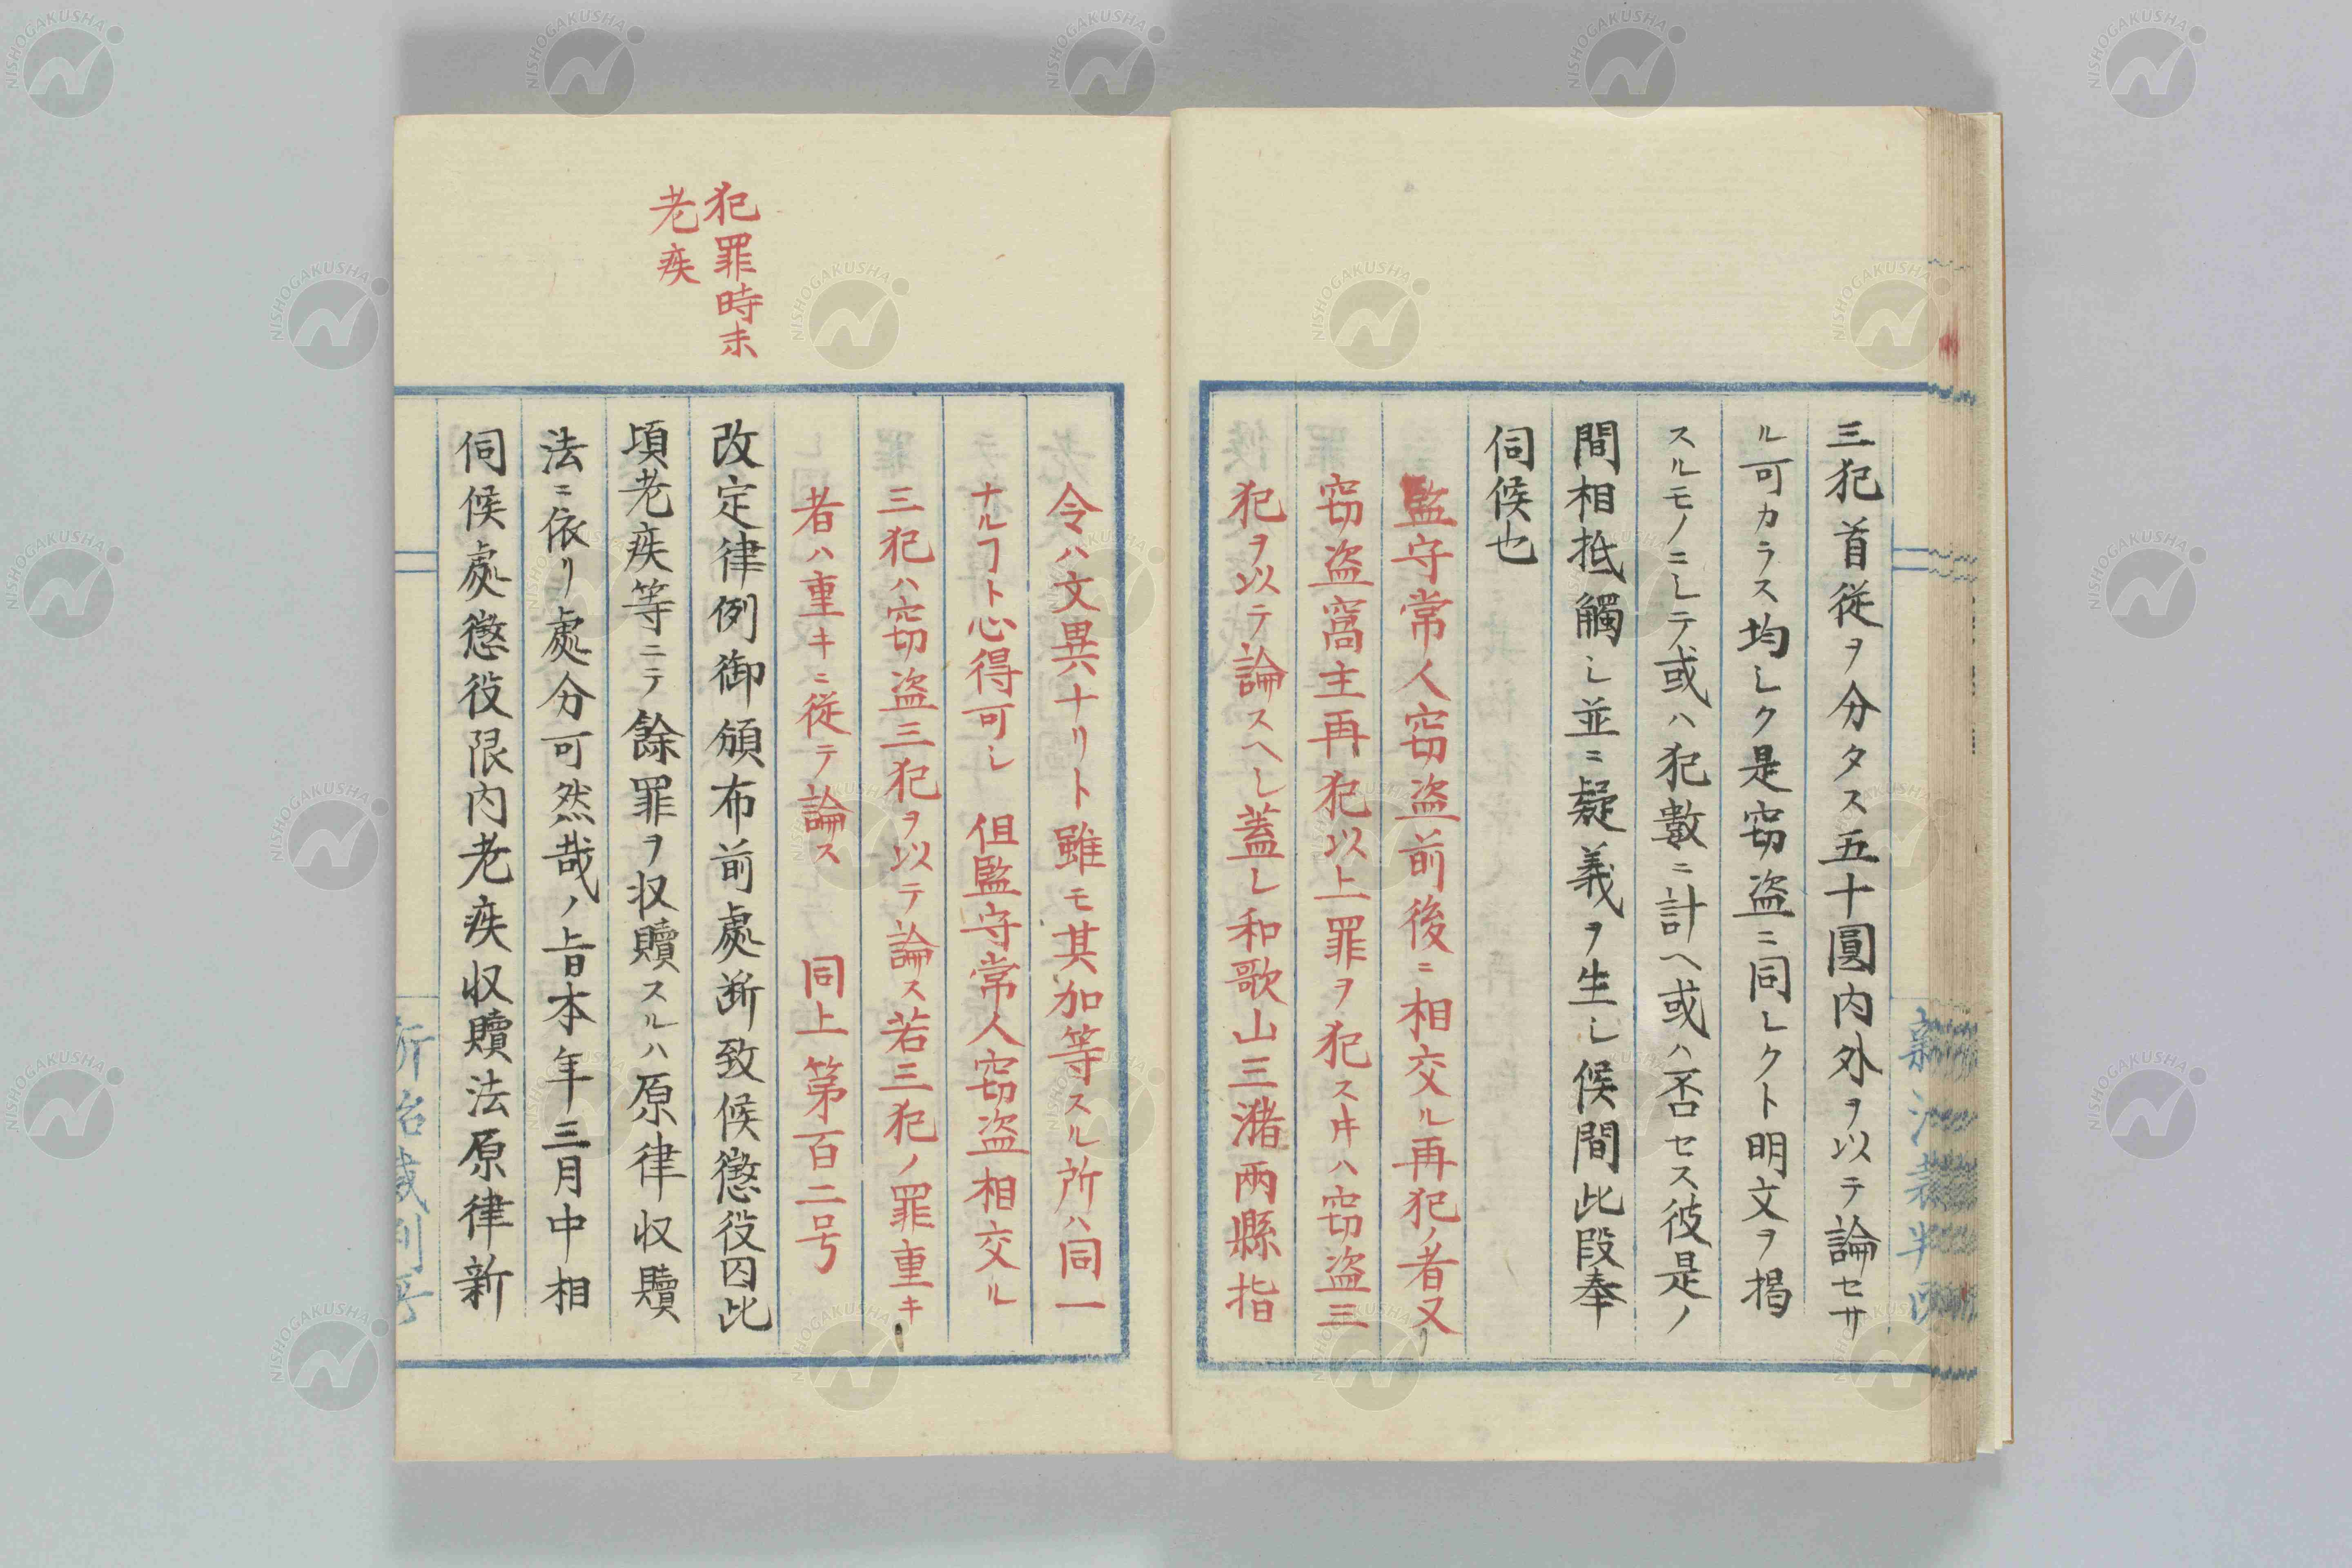 三犯首従ヲ分タス五十圓内外ヲ以テ論セサ
ル可カラス均シク是窃盗ニ同シクト明文ヲ掲
スルモノニシテ或ハ犯數ニ計ヘ或ハ否セス彼是ノ
間相抵觸シ並ニ疑義ヲ生シ候間此段奉
伺候也
監守常人窃盗前後ニ相交ル再犯ノ者又
窃盗窩主再犯以上罪ヲ犯スヰハ窃盗三
犯ヲ以テ論スヘシ蓋シ和歌山三潴兩縣指
令ハ文異ナリト雖モ其加等スル所ハ同一
ナルヿト心得可シ 但監守常人窃盗相交ル
三犯ハ窃盗三犯ヲ以テ論ス若三犯ノ罪重キ
者ハ重キニ従テ論ス 同上第百二号
犯罪時未
老疾
改定律例御頒布前處断致候懲役囚比
項老疾等ニテ餘罪ヲ収贖スルハ原律収贖
法ニ依リ處分可然哉ノ旨本年三月中相
伺候處懲役限内老疾収贖法原律新
NISHOGAKUSHA